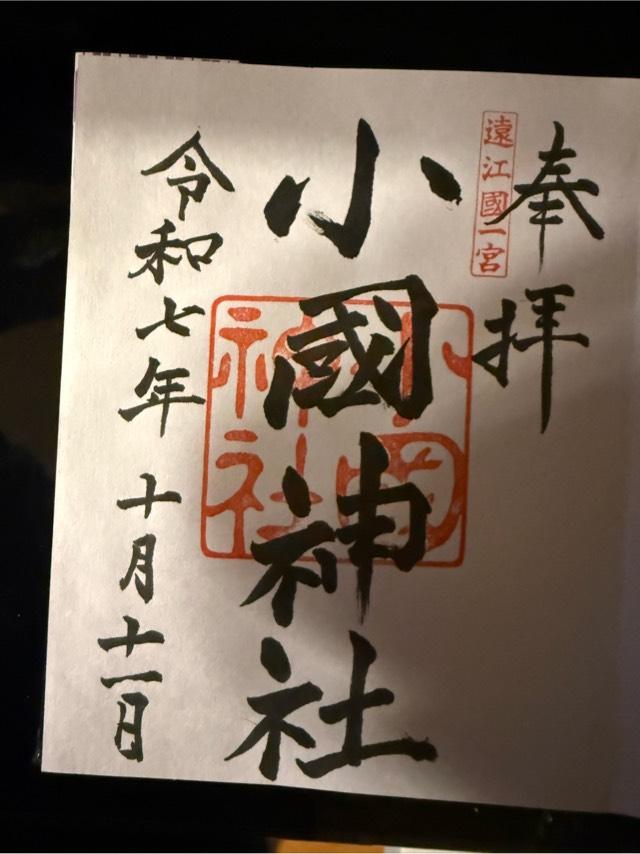 奉拝
遠江國一宮
小國神社
小國神社
令和七年 十月十一日